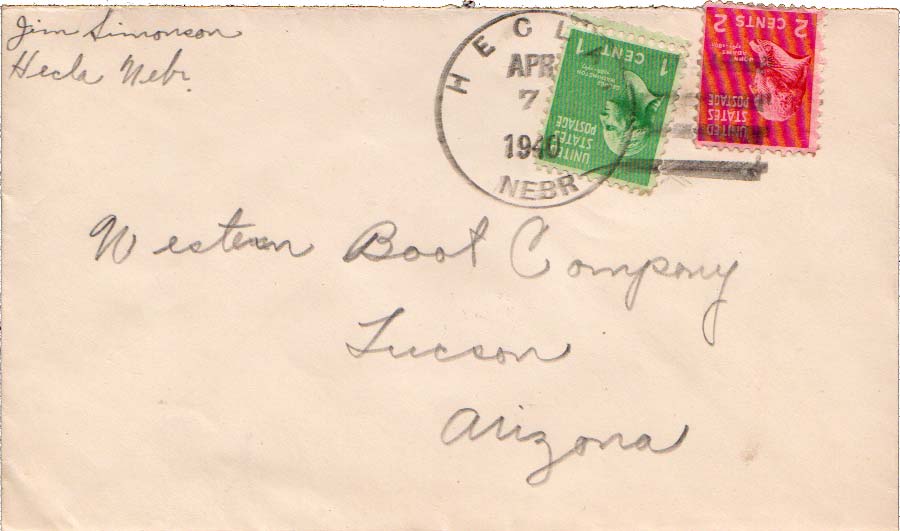 Jim Simonson
Hecla Nebr
HECLA
APR
7
1940
NEBR
1 CENT
WASHINGTON
UNITED
STATES
POSTAGE
2 CENTS 2
JOHN
ADAMS
UNITED
STATES
POSTAGE
Western Boot Company
Tucson
Arizona